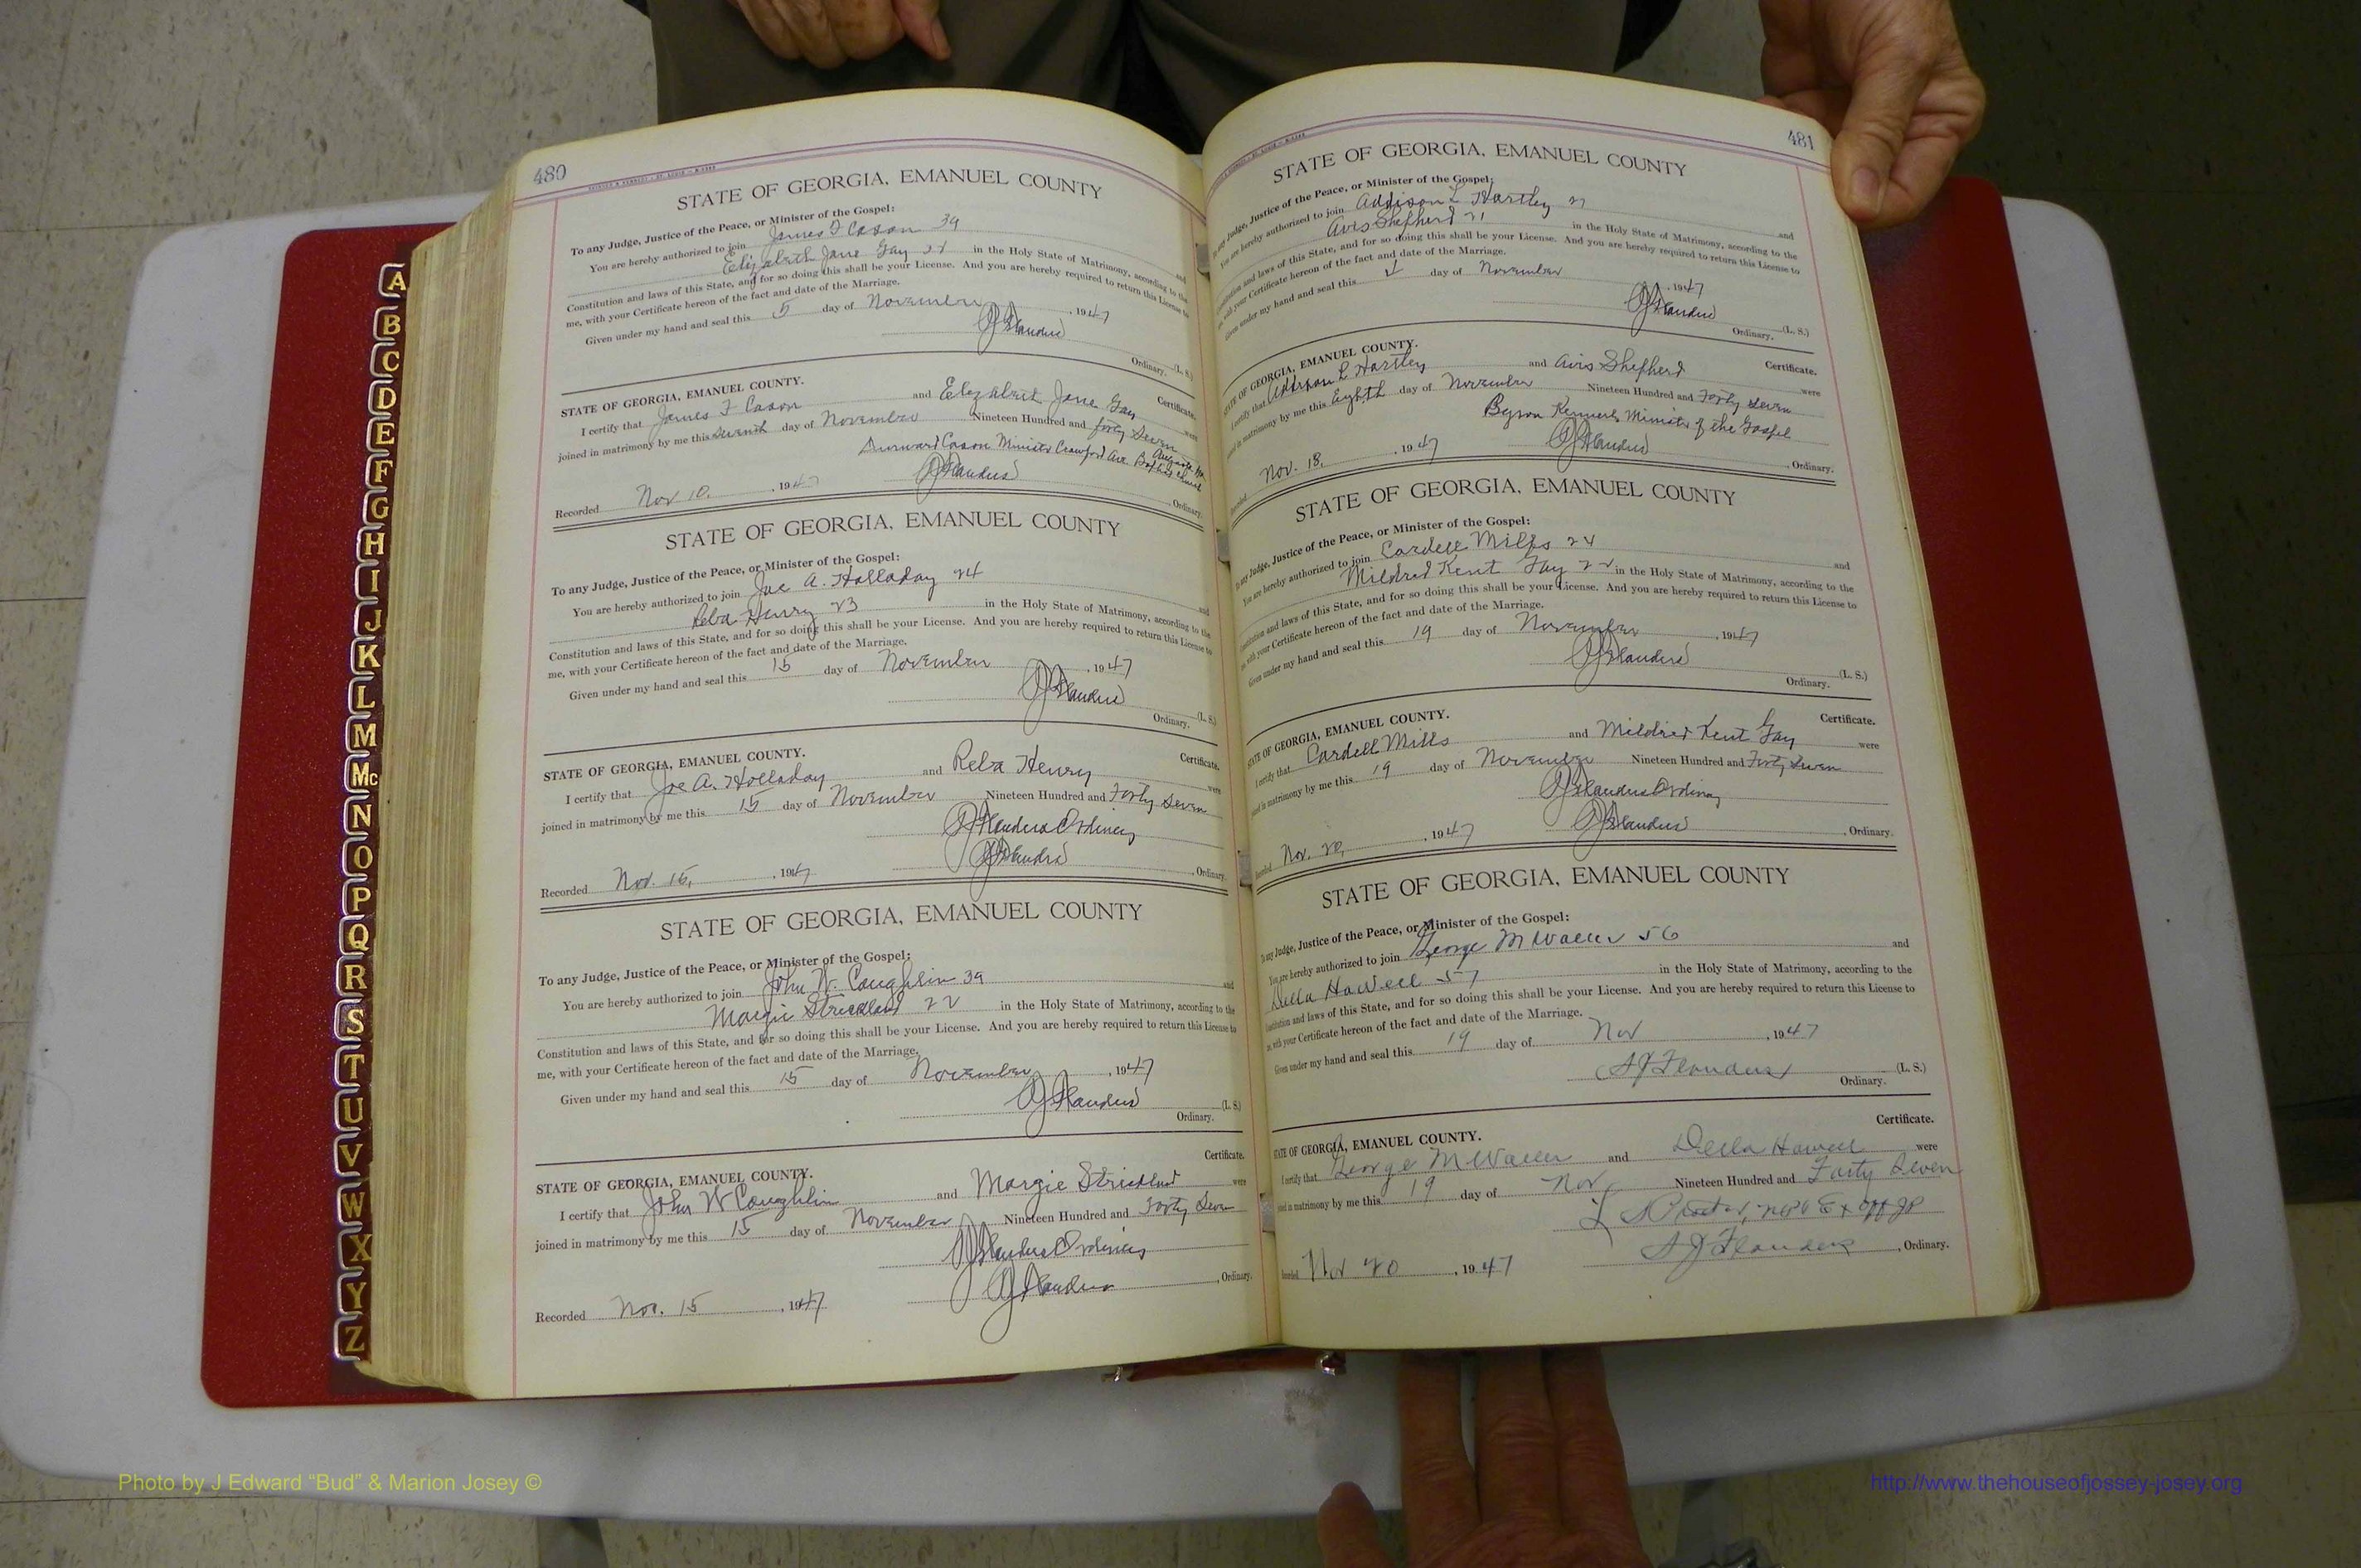 480
STATE OF GEORGIA, EMANUEL COUNTY
To any Judge, Justice of the Peace, or Minister of the Gospel:
You are hereby authorized to join James F Cason 39 and
Elizabeth Jane Gay in the Holy State of Matrimony, according to the
Constitution and laws of this State, and for so doing this shall be your License. And you are hereby required to return this License to
me, with your Certificate hereon of the fact and date of the Marriage.
Given under my hand and seal this 5 day of November, 1947
Flanders (L. S.)
Ordinary.
Certificate.
STATE OF GEORGIA, EMANUEL COUNTY.
I certify that James F Cason and Elizabeth Jane Gay were
joined in matrimony by me this seventh day of November Nineteen Hundred and forty seven
Durward Cason Minister Crawford Ave. Baptist Church Augusta, Ga.
Recorded Nov 10, 1947 Flanders, Ordinary.
STATE OF GEORGIA, EMANUEL COUNTY
To any Judge, Justice of the Peace, or Minister of the Gospel:
You are hereby authorized to join Joe A. Holladay 24 and
Reba Henry 23 in the Holy State of Matrimony, according to the
Constitution and laws of this State, and for so doing this shall be your License. And you are hereby required to return this License to
me, with your Certificate hereon of the fact and date of the Marriage.
Given under my hand and seal this 15 day of November, 1947
Flanders (L. S.)
Ordinary.
Certificate.
STATE OF GEORGIA, EMANUEL COUNTY.
I certify that Joe A. Holladay and Reba Henry were
joined in matrimony by me this 15 day of November Nineteen Hundred and Forty Seven
Flanders Ordinary
Recorded Nov. 15, 1947 Flanders, Ordinary.
STATE OF GEORGIA, EMANUEL COUNTY
To any Judge, Justice of the Peace, or Minister of the Gospel:
You are hereby authorized to join John W. Coughlin 39 and
Margie Strickland 22 in the Holy State of Matrimony, according to the
Constitution and laws of this State, and for so doing this shall be your License. And you are hereby required to return this License to
me, with your Certificate hereon of the fact and date of the Marriage.
Given under my hand and seal this 15 day of November, 1947
Flanders (L. S.)
Ordinary.
Certificate.
STATE OF GEORGIA, EMANUEL COUNTY.
I certify that John W Coughlin and Margie Strickland were
joined in matrimony by me this 15 day of November Nineteen Hundred and Forty Seven
Flanders Ordinary
Recorded Nov. 15, 1947 Flanders, Ordinary.
481
STATE OF GEORGIA, EMANUEL COUNTY
To any Judge, Justice of the Peace, or Minister of the Gospel:
You are hereby authorized to join Addison L Hartley 21 and
Avis Shepherd 21 in the Holy State of Matrimony, according to the
Constitution and laws of this State, and for so doing this shall be your License. And you are hereby required to return this License to
me, with your Certificate hereon of the fact and date of the Marriage.
Given under my hand and seal this day of November, 1947
Flanders (L. S.)
Ordinary.
Certificate.
STATE OF GEORGIA, EMANUEL COUNTY.
I certify that Addison L Hartley and Avis Shepherd were
joined in matrimony by me this Eighth day of November Nineteen Hundred and Forty Seven
Byron Minister of the Gospel
Recorded Nov. 18, 1947 Flanders, Ordinary.
STATE OF GEORGIA, EMANUEL COUNTY
To any Judge, Justice of the Peace, or Minister of the Gospel:
You are hereby authorized to join Cardell Mills 24 and
Mildred Kent Gay 22 in the Holy State of Matrimony, according to the
Constitution and laws of this State, and for so doing this shall be your License. And you are hereby required to return this License to
me, with your Certificate hereon of the fact and date of the Marriage.
Given under my hand and seal this 19 day of November, 1947
Flanders (L. S.)
Ordinary.
Certificate.
STATE OF GEORGIA, EMANUEL COUNTY.
I certify that Cardell Mills and Mildred Kent Gay were
joined in matrimony by me this 19 day of November Nineteen Hundred and Forty Seven
Flanders Ordinary
Recorded Nov. 20, 1947 Flanders, Ordinary.
STATE OF GEORGIA, EMANUEL COUNTY
To any Judge, Justice of the Peace, or Minister of the Gospel:
You are hereby authorized to join George M Waller 56 and
Della Howell 57 in the Holy State of Matrimony, according to the
Constitution and laws of this State, and for so doing this shall be your License. And you are hereby required to return this License to
me, with your Certificate hereon of the fact and date of the Marriage.
Given under my hand and seal this 19 day of Nov, 1947
Flanders (L. S.)
Ordinary.
Certificate.
STATE OF GEORGIA, EMANUEL COUNTY.
I certify that George M Waller and Della Howell were
joined in matrimony by me this 19 day of Nov Nineteen Hundred and Forty Seven
Ex off JP
Recorded Nov 20, 1947 Flanders, Ordinary.
A
B
C
D
E
F
G
H
I
J
K
L
M
Mc
N
O
P
Q
R
S
T
U
V
W
X
Y
Z
Photo by J Edward “Bud” & Marion Josey ©
http://www.thehouseofjossey-josey.org